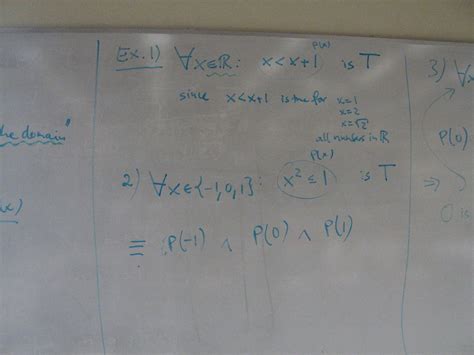 he domain"
x)
Ex. 1) ∀x∈ℝ: x<x+1 is T
P(x)
since x<x+1 is true for x=1
x=2
x=√2
all numbers in ℝ
P(x)
2) ∀x∈{-1,0,1}: x² ≤ 1 is T
≡ P(-1) ∧ P(0) ∧ P(1)
3) ∀x
P(0)
⇒
0 is